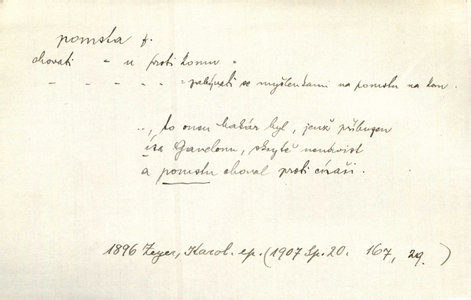 pomsta f.
chovati " u proti komu "
- - - - - zabývati se myšlenkami na pomstu na kom.
.., to onen kabár byl, jenž příbuzen
jsa Ganelonu, skrytě nenávist
a pomstu choval proti císaři.
1896 Zeyer, Karol. ep. (1907 Sp. 20. 167, 29.)